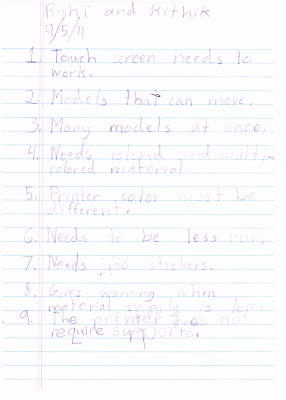 Rishi and Rithik
9/5/11
1. Touch screen needs to
work.
2. Models that can move.
3. Many models at once.
4. Needs colored and multi-
colored material
5. Printer color must be
different.
6. Needs to be less noisy.
7. Needs no stickers.
8. Gives warning when
material supply is low.
9. The printer does not
require supports.